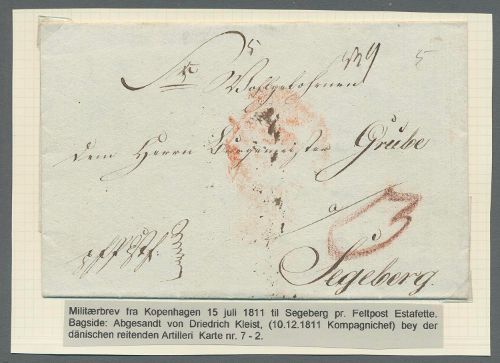 Sr Wohlgebohrnen
dem Herrn Burgemeister Grube
a
Segeberg
Militærbrev fra Kopenhagen 15 juli 1811 til Segeberg pr. Feltpost Estafette.
Bagside: Abgesandt von Driedrich Kleist, (10.12.1811 Kompagnichef) bey der
dänischen reitenden Artilleri Karte nr. 7 - 2.